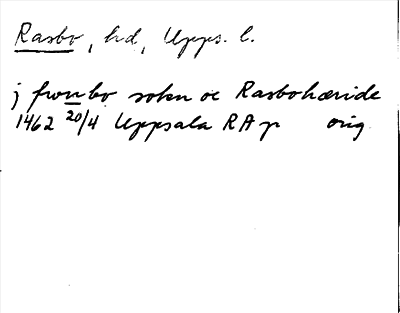 Rasbo, hd, Upps. l.
j fronbo sokn oc Rasbohæride
1462 20/4 Uppsala RAp orig